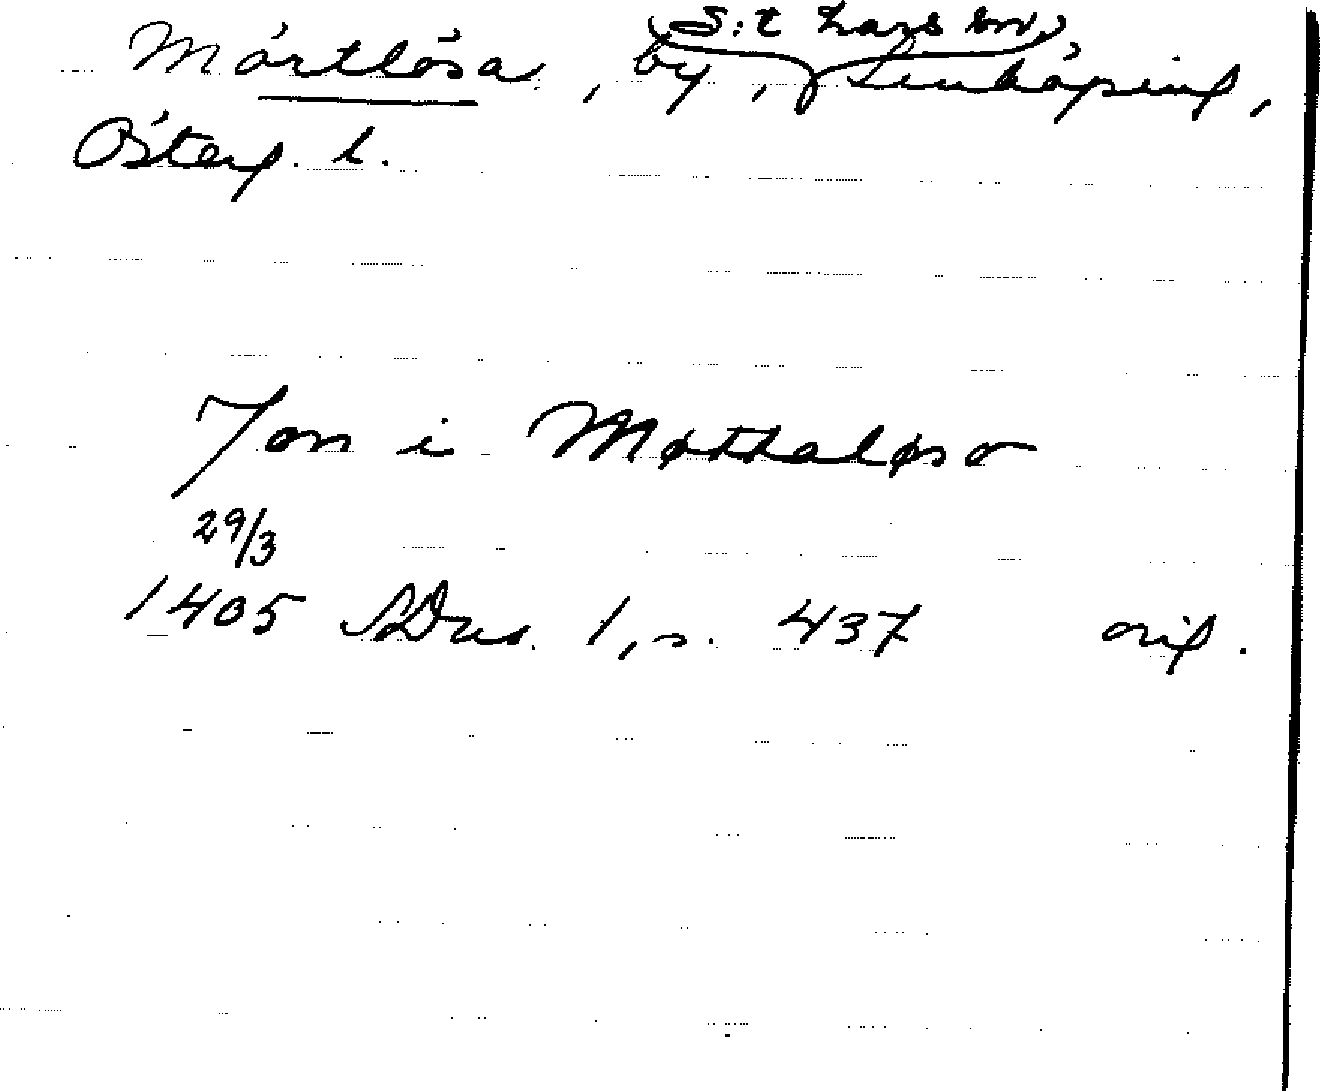 (S:t Lars sn,)
Mörtlösa, by, Linköping,
Österg. l.
Jon i Møthaløso
29/3
1405 SDns. 1, s. 437 orig.